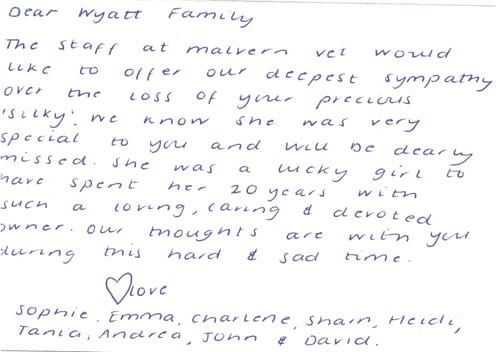 Dear Wyatt Family
The staff at malvern vet would
like to offer our deepest sympathy
over the loss of your precious
'Silky'. We know she was very
special to you and will be dearly
missed. She was a lucky girl to
have spent her 20 years with
such a loving, caring & devoted
owner. Our thoughts are with you
during this hard & sad time.
♡love
Sophie, Emma, Charlene, Sharn, Heidi,
Tania, Andrea, John & David.